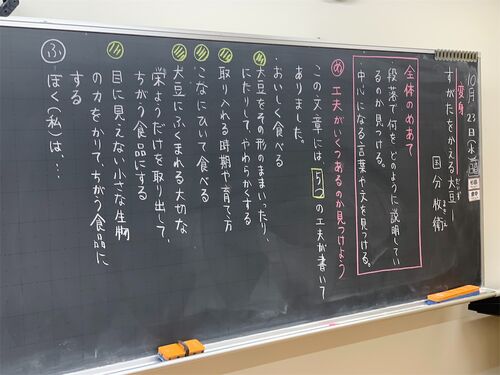 10月23日
変身
すがたをかえる大豆
だいず
国分 牧衛
全体のめあて
段落で何を、どのように説明してい
るのか見つける。
中心になる言葉や文を見つける。
め 工夫がいくつあるのか見つけよう
この文章には 5つ の工夫が書いて
ありました。
おいしく食べる
大豆をその形のままいったり、
にたりして、やわらかくする
取り入れる時期や育て方
こなにひいて食べる
大豆にふくまれる大切な
栄ようだけを取り出して、
ちがう食品にする
目に見えない小さな生物
の力をかりて、ちがう食品に
する
ふ ぼく(私)は、…